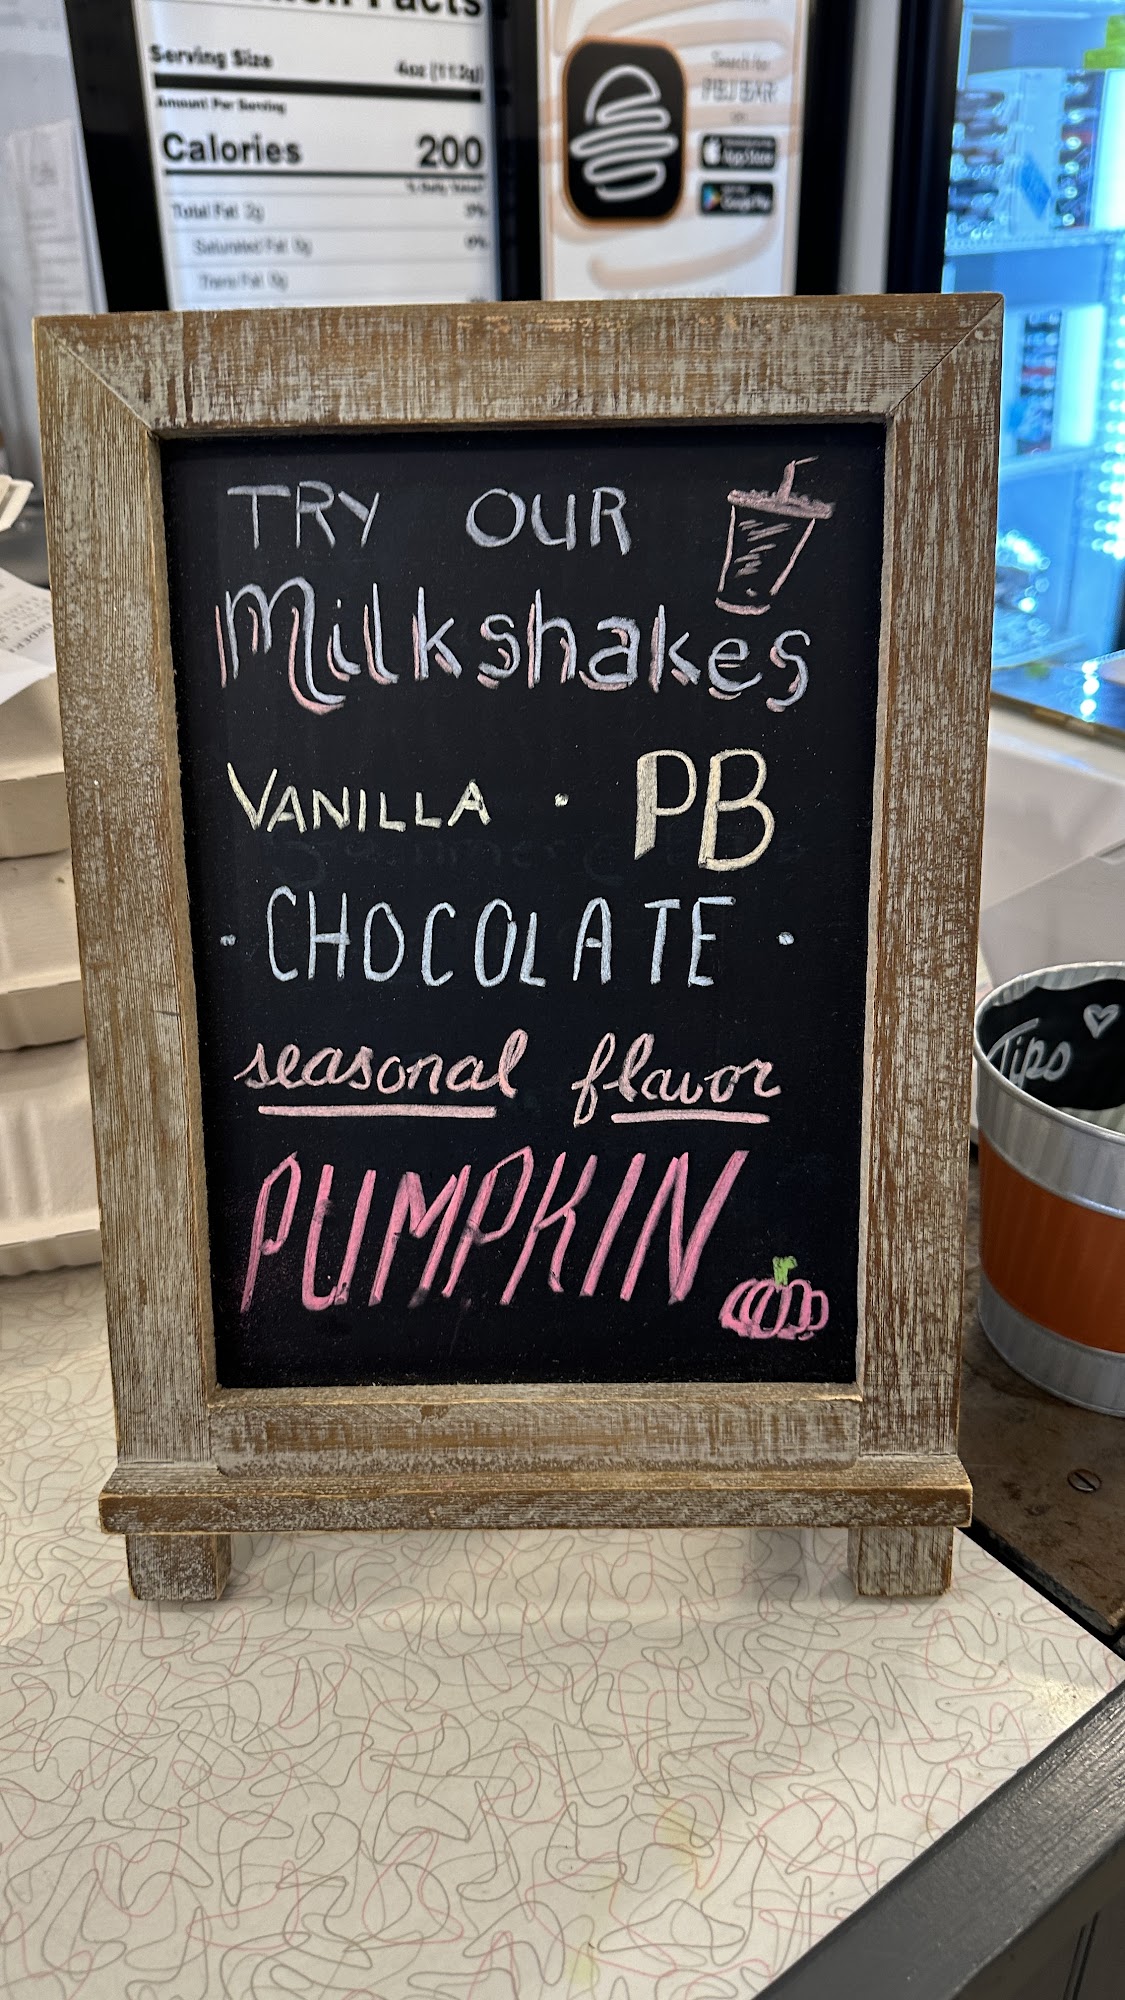 Facts
Serving Size 4oz (112g)
Amount Per Serving
Calories 200
% Daily Value*
Total Fat 2g 3%
Saturated Fat 0g 0%
Trans Fat 0g
Search for
PBJ BAR
on
App Store
Google Play
TRY OUR
Milkshakes
VANILLA · PB
· CHOCOLATE ·
seasonal flavor
PUMPKIN
Tips